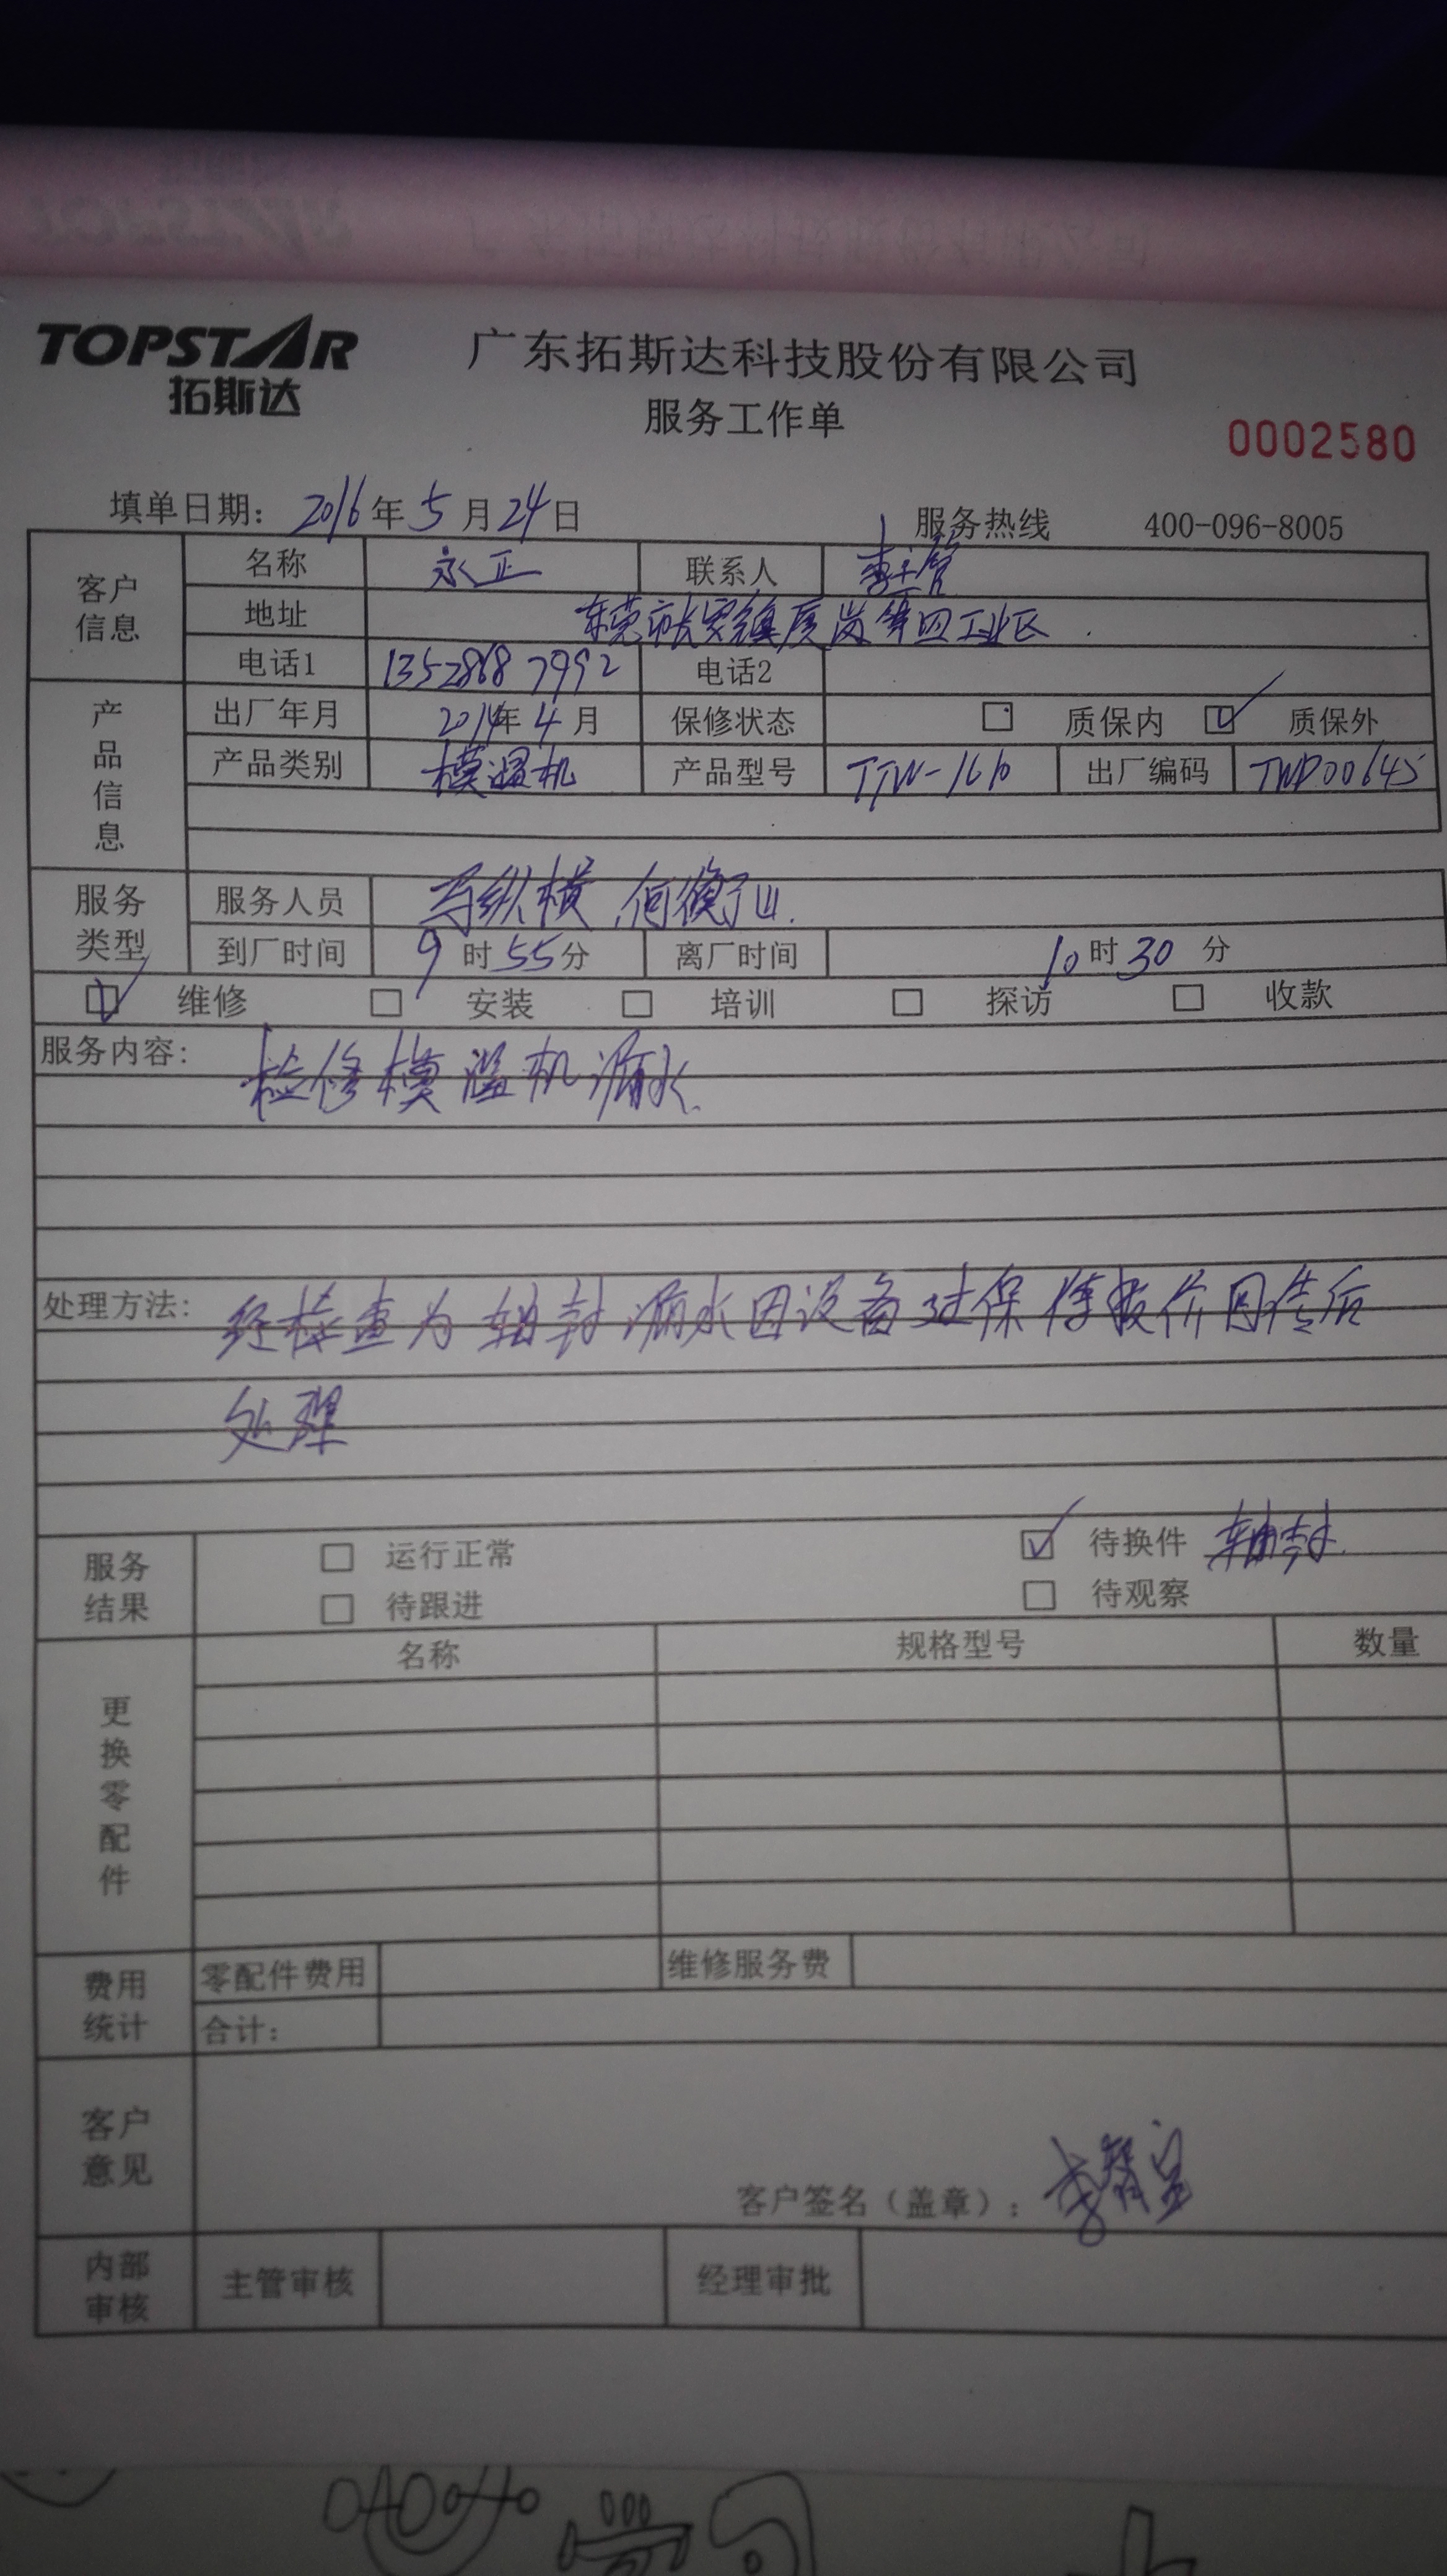 TOPSTAR
拓斯达
广东拓斯达科技股份有限公司
服务工作单
0002580
填单日期: 2016年5月24日 服务热线 400-096-8005
客户信息 名称 永正 联系人 李主管
地址 东莞市长安镇厦岗第四工业区
电话1 13528687992 电话2
产品信息 出厂年月 2014年4月 保修状态 □ 质保内 ☑ 质保外
产品类别 模温机 产品型号 TTW-1610 出厂编码 TWP00645
服务类型 服务人员 纵横 何衡山
到厂时间 9时55分 离厂时间 10时30分
☑ 维修 □ 安装 □ 培训 □ 探访 □ 收款
服务内容: 检修模温机漏水
处理方法: 经检查为轴封漏水因设备过保待报价回传后
处理
服务结果 □ 运行正常 ☑ 待换件 轴封
□ 待跟进 □ 待观察
更换零配件 名称 规格型号 数量
费用统计 零配件费用 维修服务费
合计:
客户意见
客户签名（盖章）:
内部审核 主管审核 经理审批